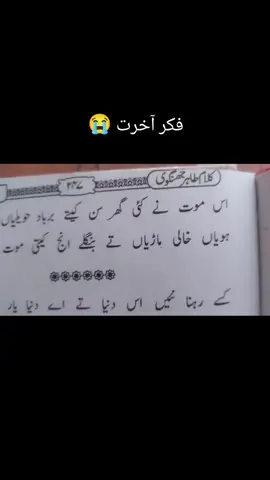 فکر آخرت 😭
۲۳۷ کلام طاہر جھنگوی
اس موت نے کئی گھر سن کیتے برباد حویلیاں
ہویاں خالی ماڑیاں تے بنگلے انج کیتی موت
کسے رہنا نئیں اس دنیا تے اے دنیا یار